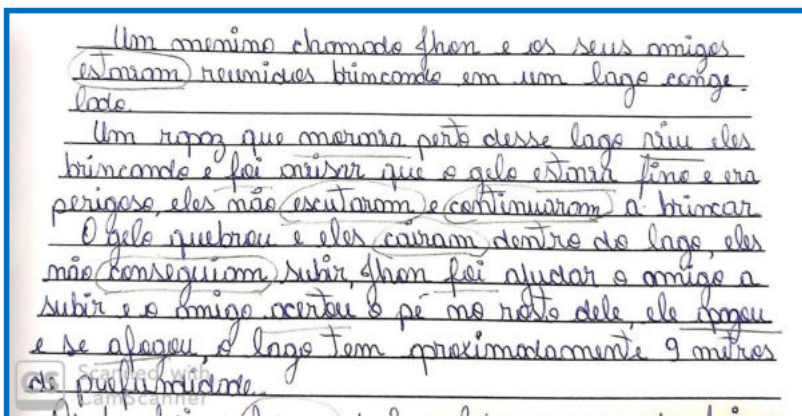 Um menino chamado Jhon e os seus amigos
estavam reunidos brincando em um lago conge-
lado.
Um rapaz que morava perto desse lago viu eles
brincando e foi avisar que o gelo estava fino e era
perigoso, eles não escutaram e continuaram a brincar
O gelo quebrou e eles caíram dentro do lago, eles
não conseguiam subir, Jhon foi ajudar o amigo a
subir e o amigo acertou o pé no rosto dele, ele apagou
e se afogou, o lago tem aproximadamente 9 metros
de profundidade.
CS Scanned with
CamScanner